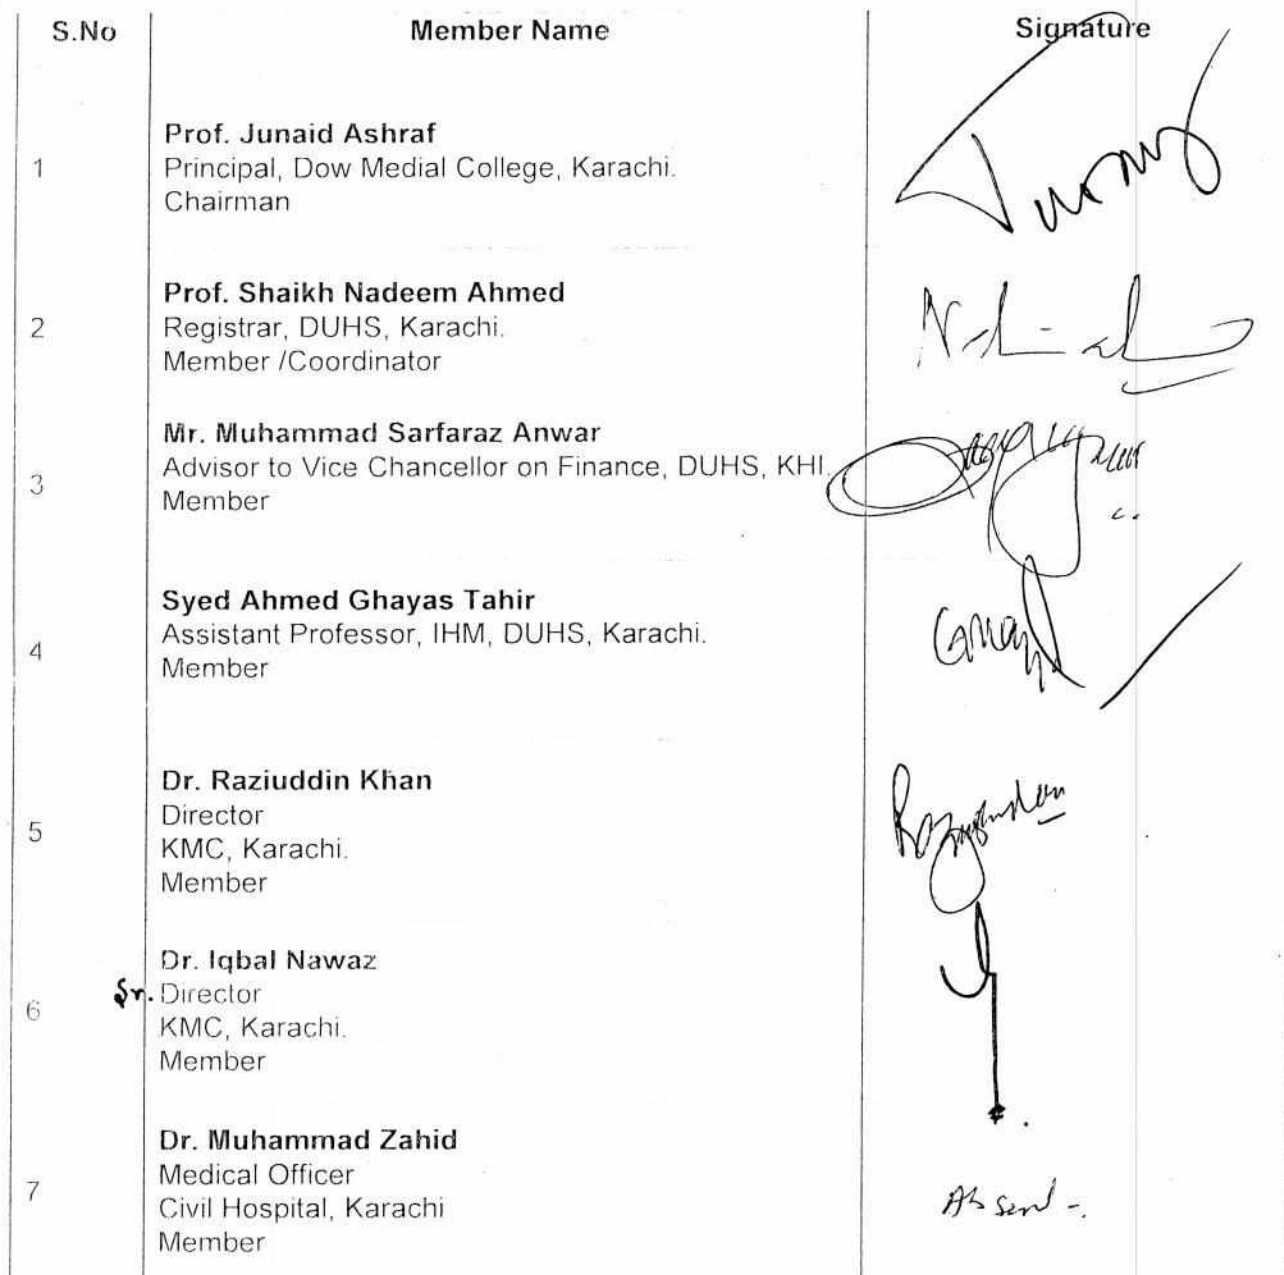 S.No Member Name Signature
Prof. Junaid Ashraf
1 Principal, Dow Medial College, Karachi.
Chairman
Prof. Shaikh Nadeem Ahmed
2 Registrar, DUHS, Karachi.
Member /Coordinator
Mr. Muhammad Sarfaraz Anwar
Advisor to Vice Chancellor on Finance, DUHS, KHI.
3 Member
Syed Ahmed Ghayas Tahir
Assistant Professor, IHM, DUHS, Karachi.
4 Member
Dr. Raziuddin Khan
Director
5 KMC, Karachi.
Member
Dr. Iqbal Nawaz
Sr. Director
6 KMC, Karachi.
Member
Dr. Muhammad Zahid
Medical Officer
7 Civil Hospital, Karachi Absent -.
Member